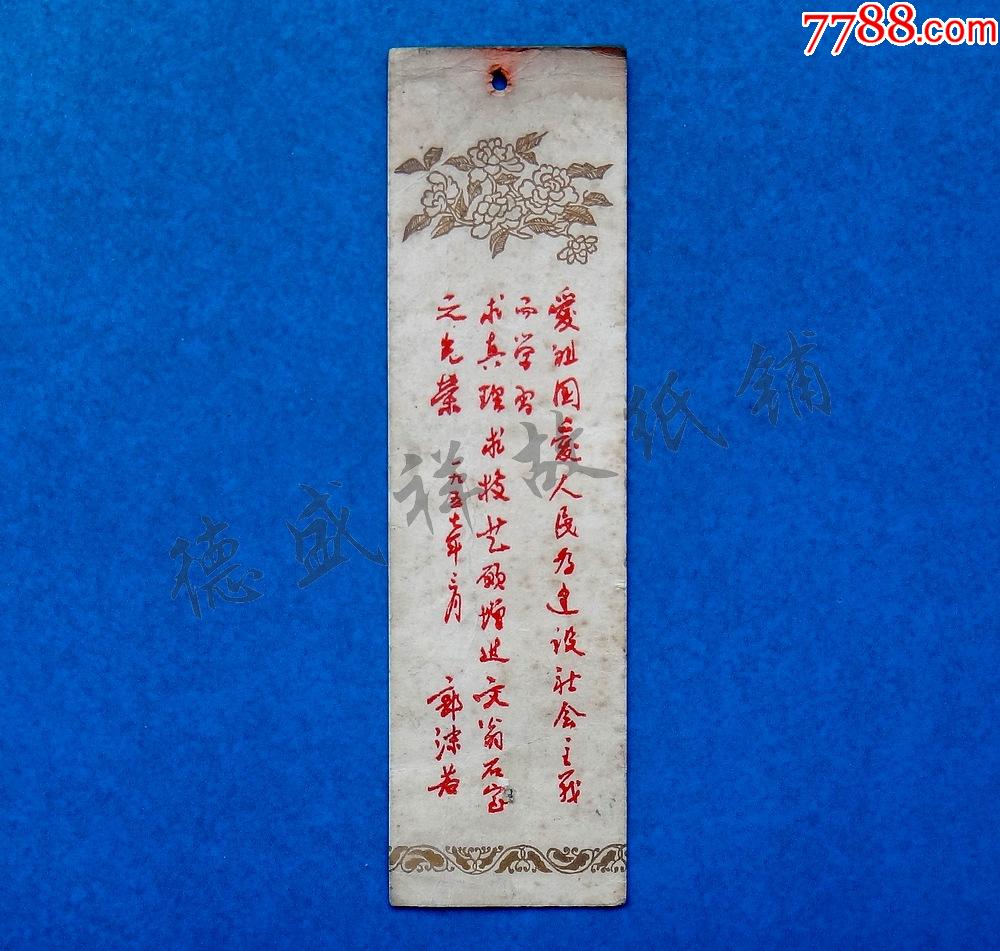 7788.com
愛祖国愛人民为建设社会主義
而学習
求真理求技艺願增进文翁石室
之光榮
一九五七年三月
郭沫若
德盛祥故纸铺